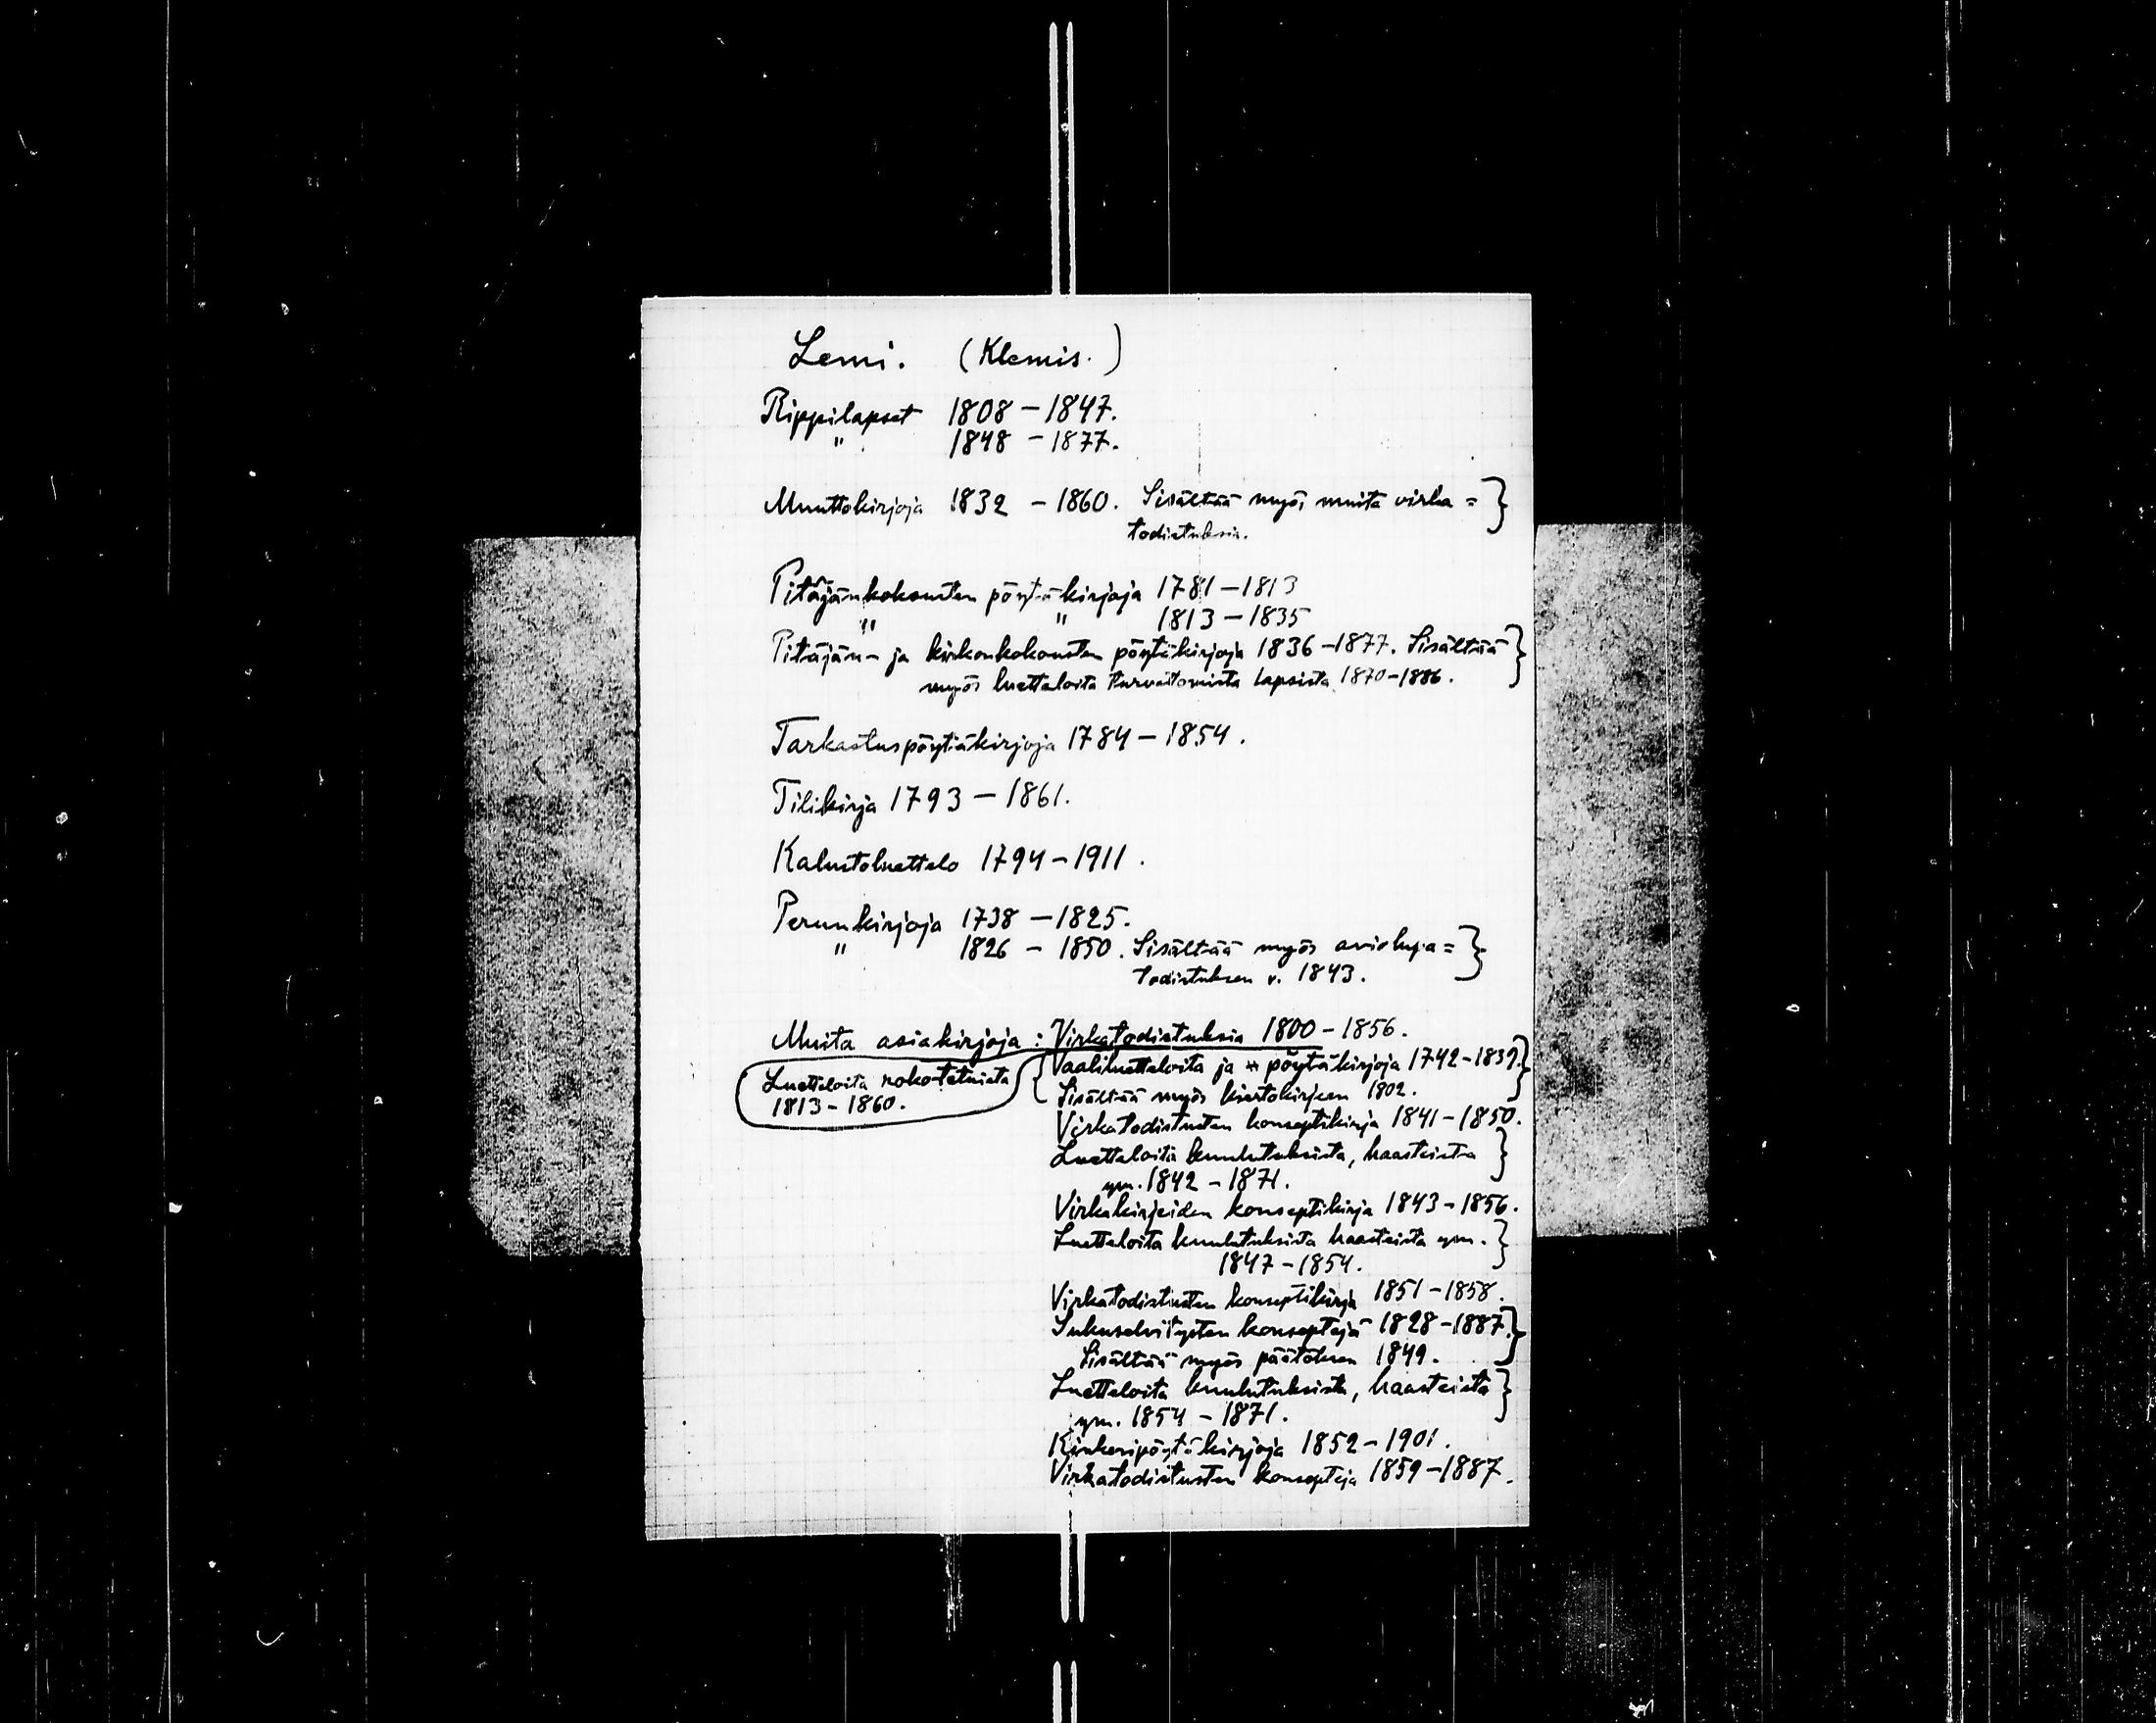 Lemi. (Klemis.)
Rippilapset 1808 - 1847.
" 1848 - 1877.
Muuttokirjoja 1832 - 1860. Sisältää myös muita virka=
todistuksia.
Pitäjänkokousten pöytäkirjoja 1781 - 1813
" " 1813 - 1835
Pitäjän- ja kirkonkokousten pöytäkirjoja 1836 - 1877. Sisältää
myös luetteloita turvattomista lapsista 1870 - 1886.
Tarkastuspöytäkirjoja 1784 - 1854.
Tilikirja 1793 - 1861.
Kalustoluettelo 1794 - 1911.
Perunkirjoja 1738 - 1825.
" 1826 - 1850. Sisältää myös aviolupa=
todistuksen v. 1843.
Muita asiakirjoja: Virkatodistuksia 1800 - 1856.
Luetteloita rokotetuista
1813 - 1860.
Vaaliluetteloita ja pöytäkirjoja 1742 - 1839.
Sisältää myös kiertokirjeen 1802.
Virkatodistusten konseptikirja 1841 - 1850.
Luetteloita kuulutuksista, haasteista
ym. 1842 - 1871.
Virkakirjeiden konseptikirja 1843 - 1856.
Luetteloita kuulutuksista haasteista ym.
1847 - 1854.
Virkatodistusten konseptikirja 1851 - 1858.
Sukuselvitysten konseptejä 1828 - 1887.
Sisältää myös päätöksen 1849.
Luetteloita kuulutuksista, haasteista
ym. 1854 - 1871.
Kinkeripöytäkirjoja 1852 - 1901.
Virkatodistusten konsepteja 1859 - 1887.